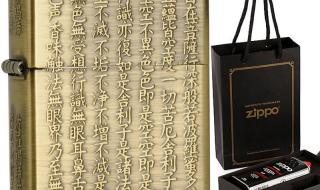 在菩薩行深般若波羅蜜多
蘊皆空度一切苦厄舍利子
空不異色色即是空空即是
識亦復如是舍利子是諸法
不滅不垢不淨不增不減是
色無受想行識無眼耳鼻舌
声香味触法無眼界乃至無
zippo